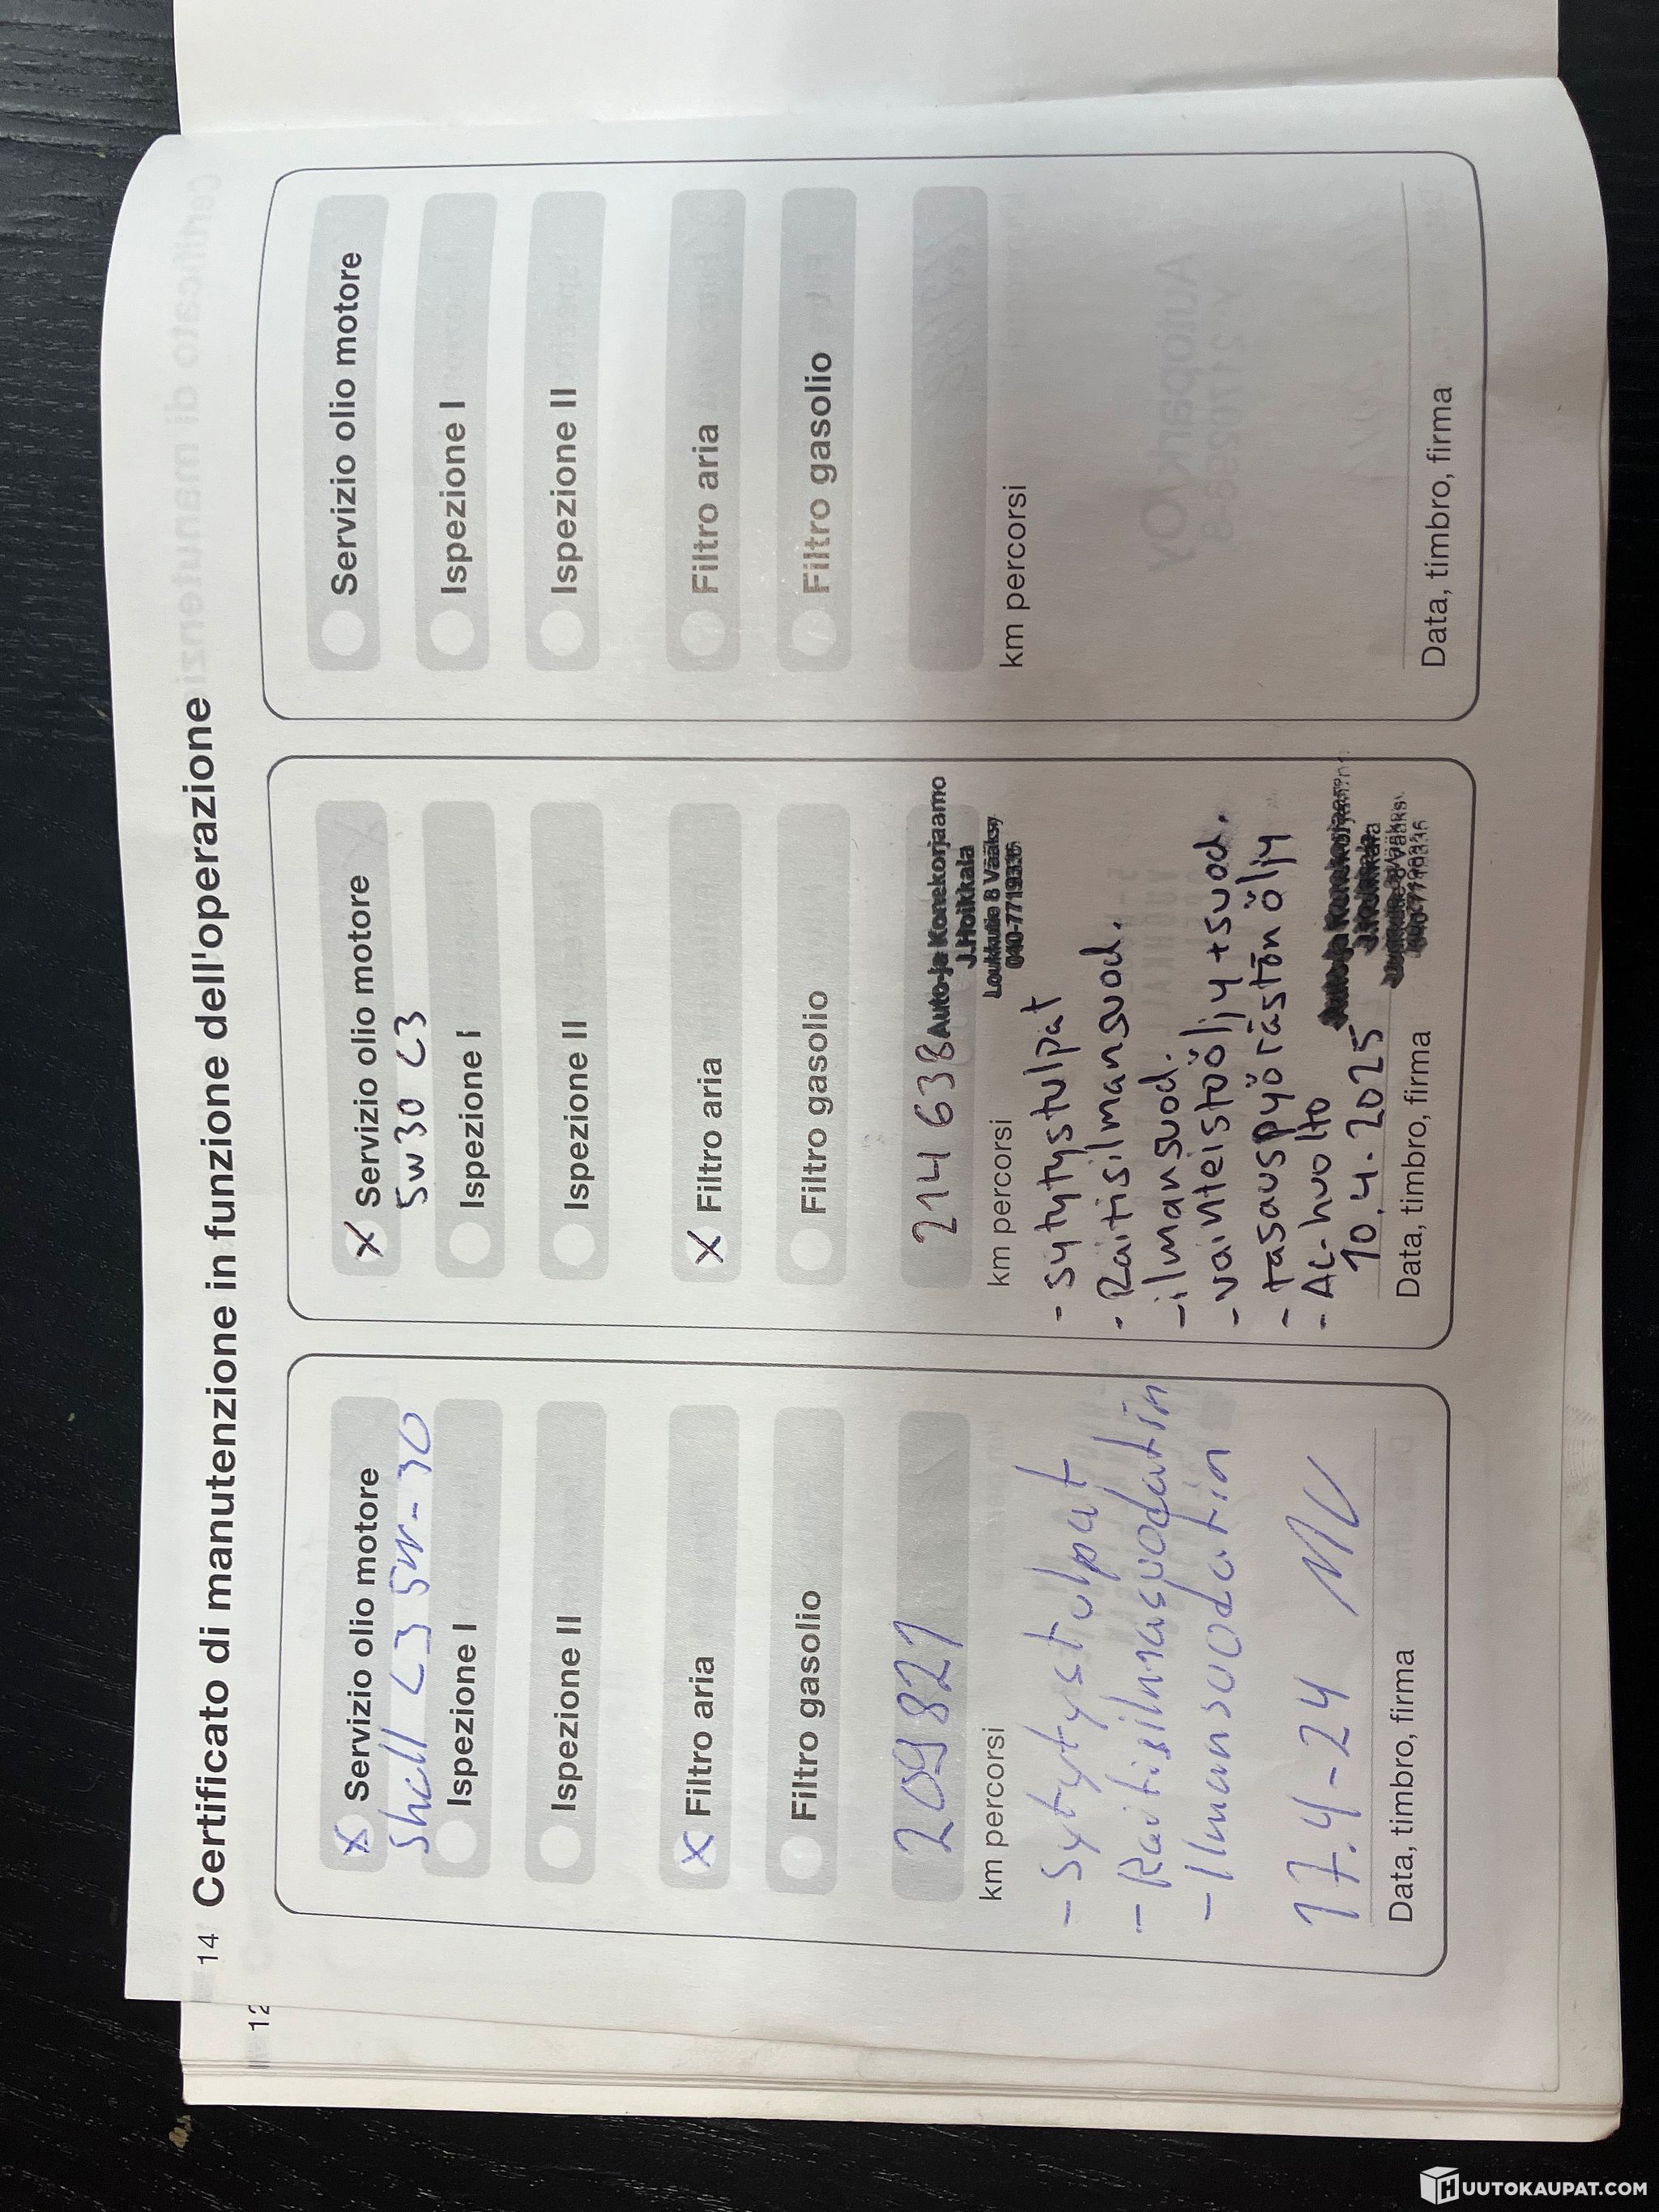 14 Certificato di manutenzione in funzione dell'operazione
12
X Servizio olio motore
Shall C3 5W-30
Ispezione I
Ispezione II
X Filtro aria
Filtro gasolio
209821
km percorsi
- Sytytystulpat
- Raitisilmasuodatin
- Ilmansuodatin
17.4-24
Data, timbro, firma
X Servizio olio motore
5w30 C3
Ispezione I
Ispezione II
X Filtro aria
Filtro gasolio
214638
Auto-ja Konekorjaamo
J.Hoikkala
Loukkutie 8 Vääksy
040-7719336
km percorsi
- sytytystulpat
- Raitisilmansuod.
- ilmansuod.
- vaihteistoöljy+suod.
- tasauspyörästön öljy
- AC-huolto
10.4.2025
Auto-ja Konekorjaamo
Data, timbro, firma
Servizio olio motore
Ispezione I
Ispezione II
Filtro aria
Filtro gasolio
km percorsi
Data, timbro, firma
HUUTOKAUPAT.COM